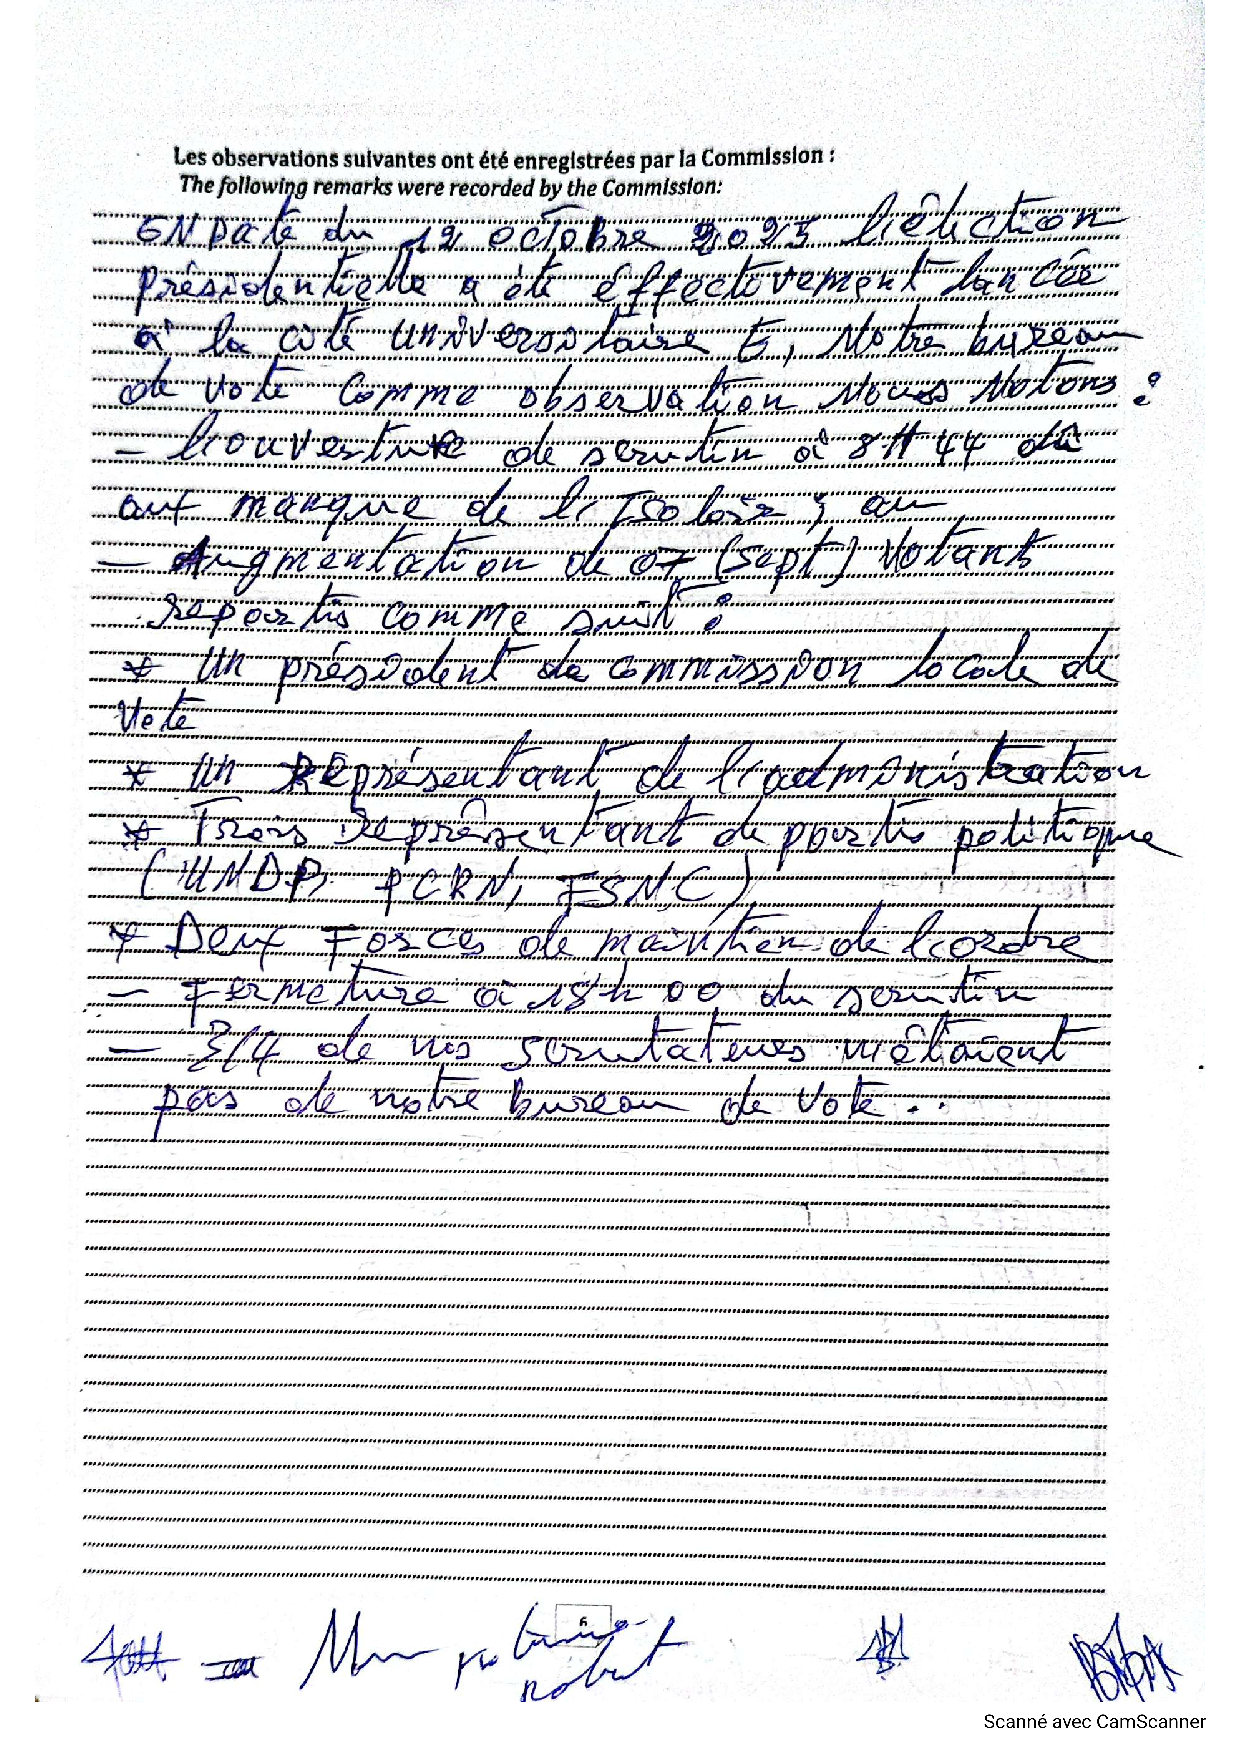 Les observations suivantes ont été enregistrées par la Commission :
The following remarks were recorded by the Commission:
EN Date du 12 octobre 2025 l'élection
Présidentielle a été effectivement lancée
à la cité universitaire E, Notre bureau
de vote comme observation Nous Notons :
- l'ouverture de scrutin à 8H 44 dû
aux manque de l'Isoloir ; au
- Augmentation de 07 (sept) Votant
repartis comme suit :
* un président de commission locale de
Vote
* un Représentant de l'administration
* Trois Représentant de partis politique
(UNDP, PCRN, FSNC)
* Deux Forces de maintien de l'ordre
- Fermeture à 18h 00 du scrutin
- 3/4 de nos scrutateurs n'étaient
pas de notre bureau de vote . .
6
Scanné avec CamScanner